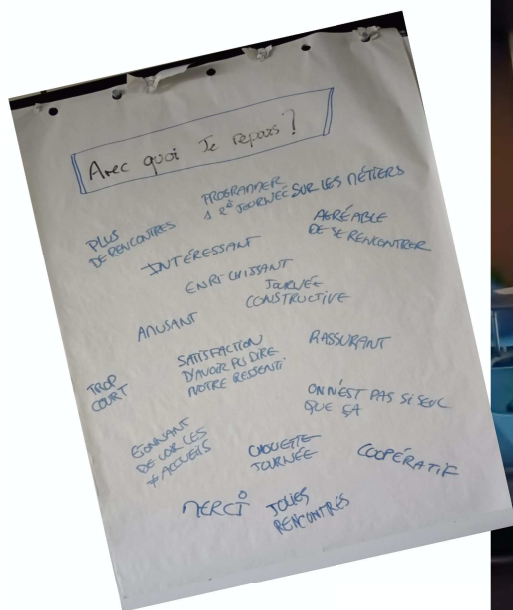 Avec quoi Je repars ?
PROGRAMMER
1 2è JOURNÉE SUR LES MÉTIERS
PLUS
DE RENCONTRES
AGRÉABLE
DE SE RENCONTRER
INTÉRESSANT
ENRICHISSANT
JOURNÉE
CONSTRUCTIVE
AMUSANT
SATISFACTION
D'AVOIR PU DIRE
NOTRE RESSENTI
RASSURANT
TROP
COURT
ON N'EST PAS SI SEUL
QUE ÇA
ÉTONNANT
DE VOIR LES
+ ACCUEILS
CHOUETTE
JOURNÉE
COOPÉRATIF
MERCI
JOLIES
RENCONTRES